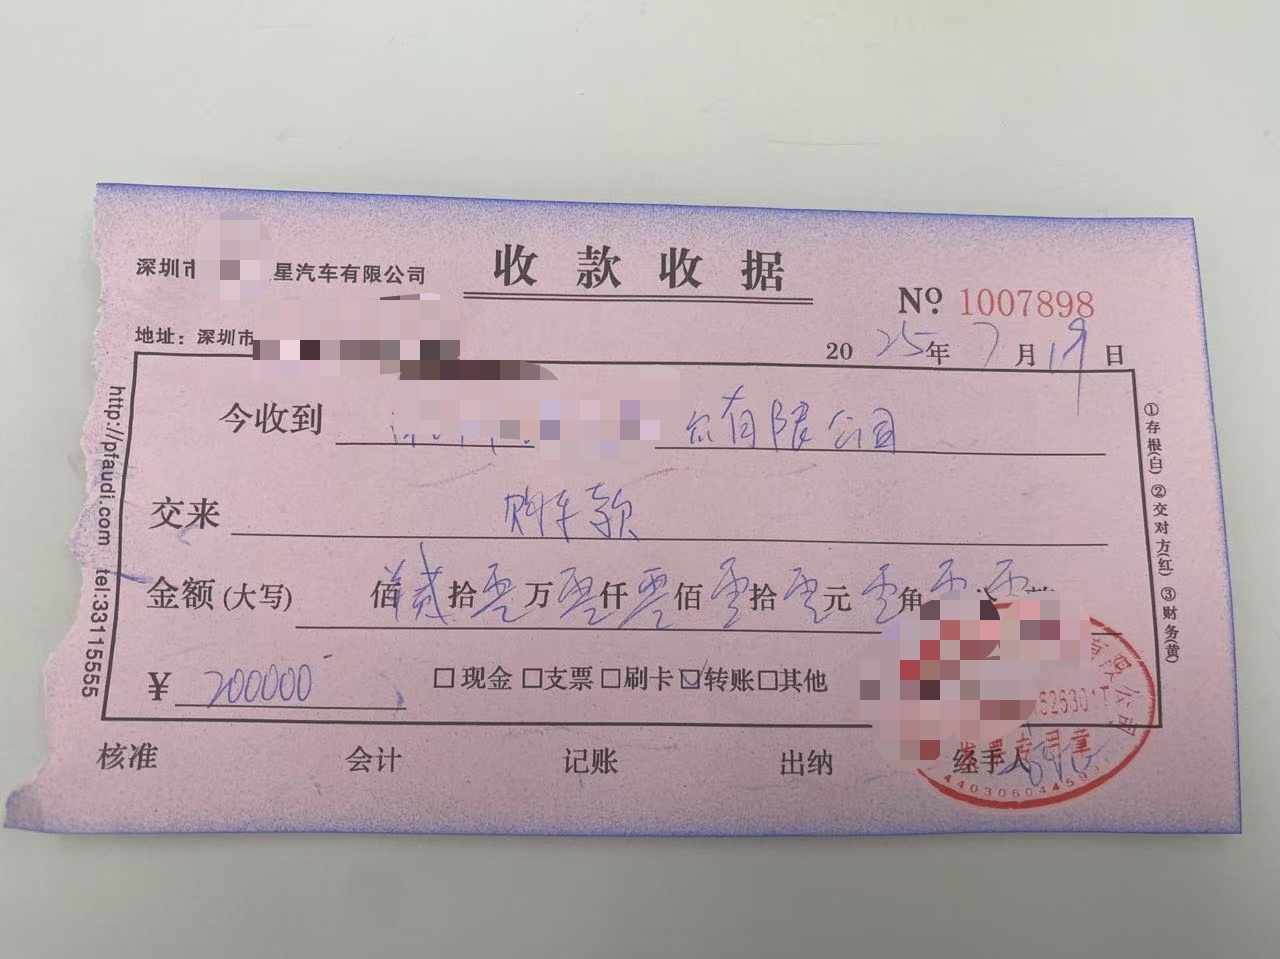 深圳市 星汽车有限公司
收款收据
№ 1007898
地址：深圳市
2025年7月19日
今收到 有限公司
交来 购车款
金额(大写) 佰贰拾零万零仟零佰零拾零元零角零
¥ 200000
□现金□支票□刷卡☑转账□其他
核准 会计 记账 出纳 经手人
http://pfaudi.com tel:33115555
①存根(白)②交对方(红)③财务(黄)
有限公司
526301T
发票专用章